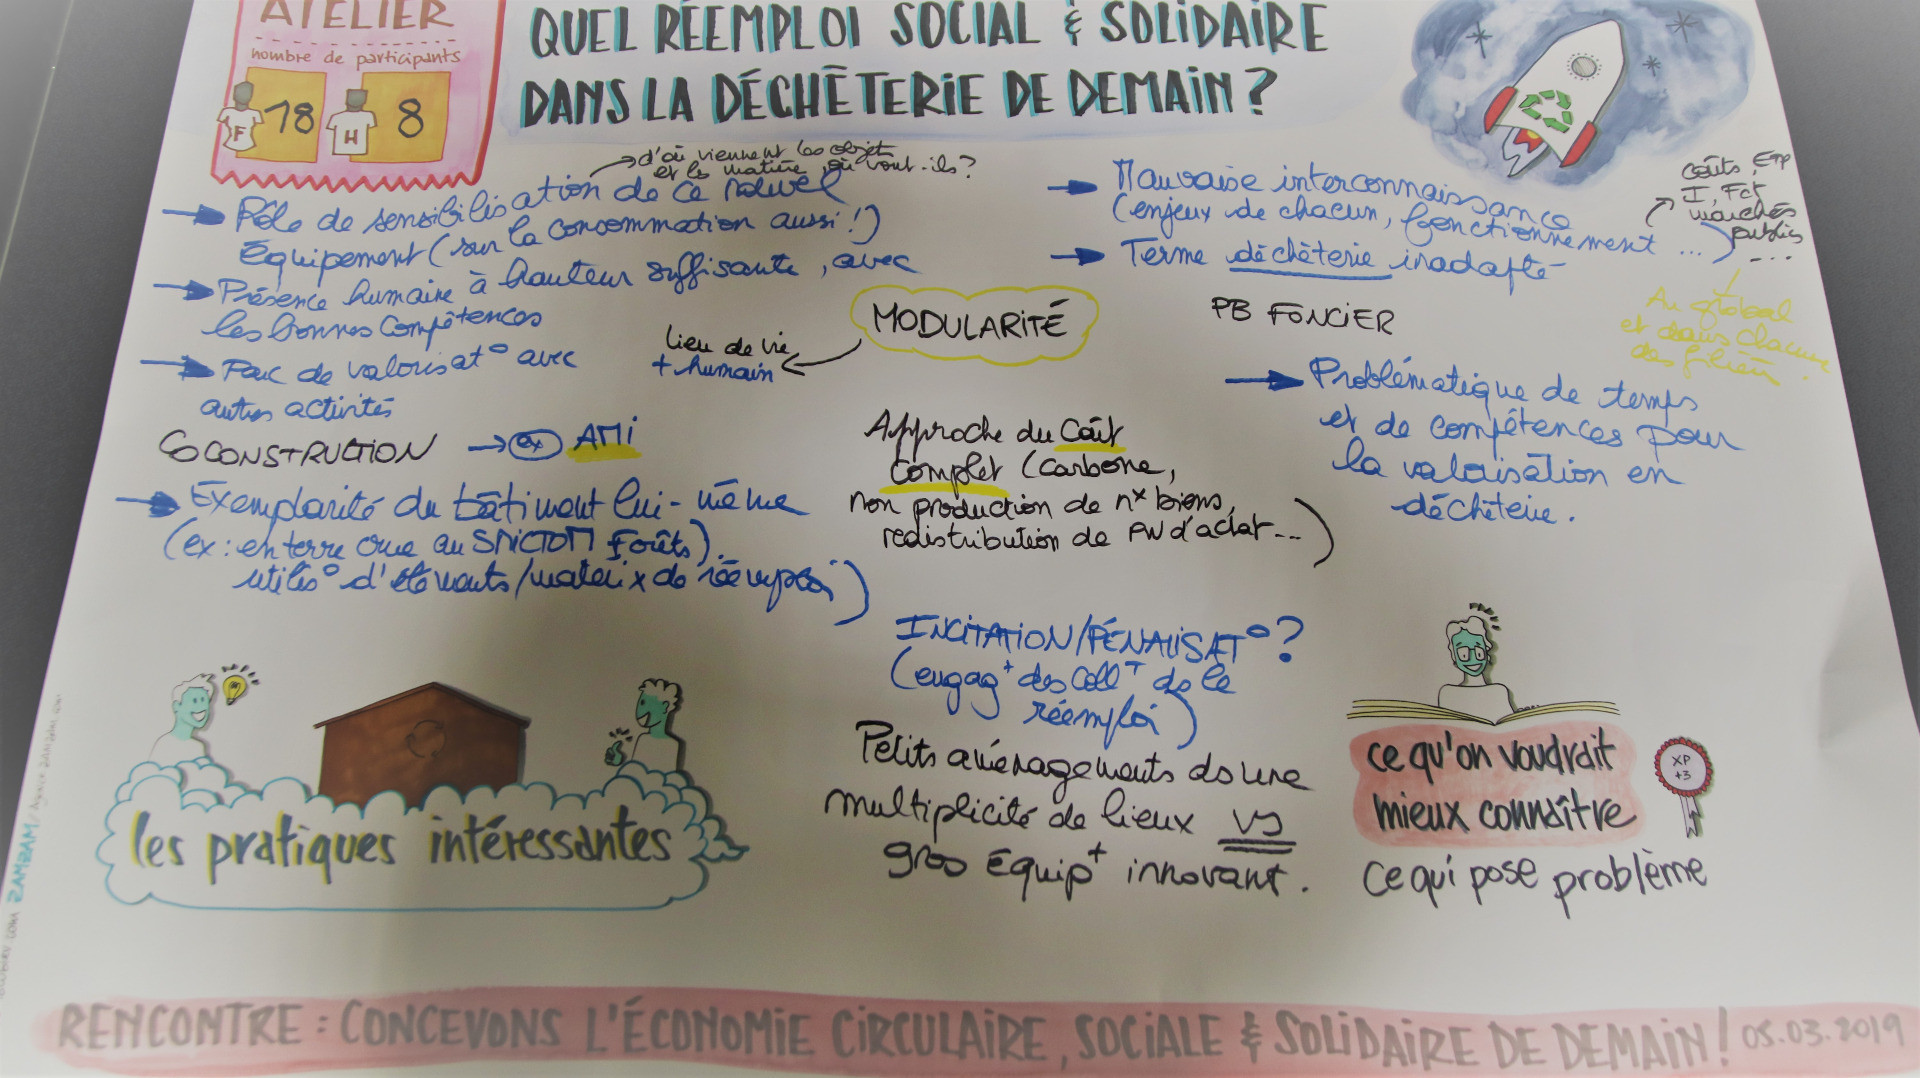 ATELIER
nombre de participants
F 18 H 8
QUEL RÉEMPLOI SOCIAL & SOLIDAIRE
DANS LA DÉCHÈTERIE DE DEMAIN ?
d'où viennent les objets
et les matières, où vont-ils ?
Pôle de sensibilisation de ce nouvel
Équipement (sur la consommation aussi !)
Présence humaine à hauteur suffisante, avec
les bonnes compétences
Parc de valorisat° avec
autres activités
COCONSTRUCTION → ex AMI
Exemplarité du bâtiment lui-même
(ex : en terre crue au SMICTOM Forêts)
utilis° d'éléments/matérix de réemploi)
MODULARITÉ
Lieu de vie
+ humain
Approche du Coût
complet (carbone,
non production de nx biens,
redistribution de PV d'achat...)
INCITATION/PÉNALISAT° ?
(engag+ des collT de le
réemploi)
Petits aménagements ds une
multiplicité de lieux VS
gros équip+ innovant.
Mauvaise interconnaissance
(enjeux de chacun, fonctionnement ...)
coûts, ETP
I, Fct
marchés
publics
...
Au global
et dans chacune
des filières.
Terme déchèterie inadapté
PB FONCIER
Problématique de temps
et de compétences pour
la valorisation en
déchèterie.
les pratiques intéressantes
ce qu'on voudrait
mieux connaître
XP
+3
ce qui pose problème
RENCONTRE : CONCEVONS L'ÉCONOMIE CIRCULAIRE, SOCIALE & SOLIDAIRE DE DEMAIN ! 05.03.2019
ZAMZAM